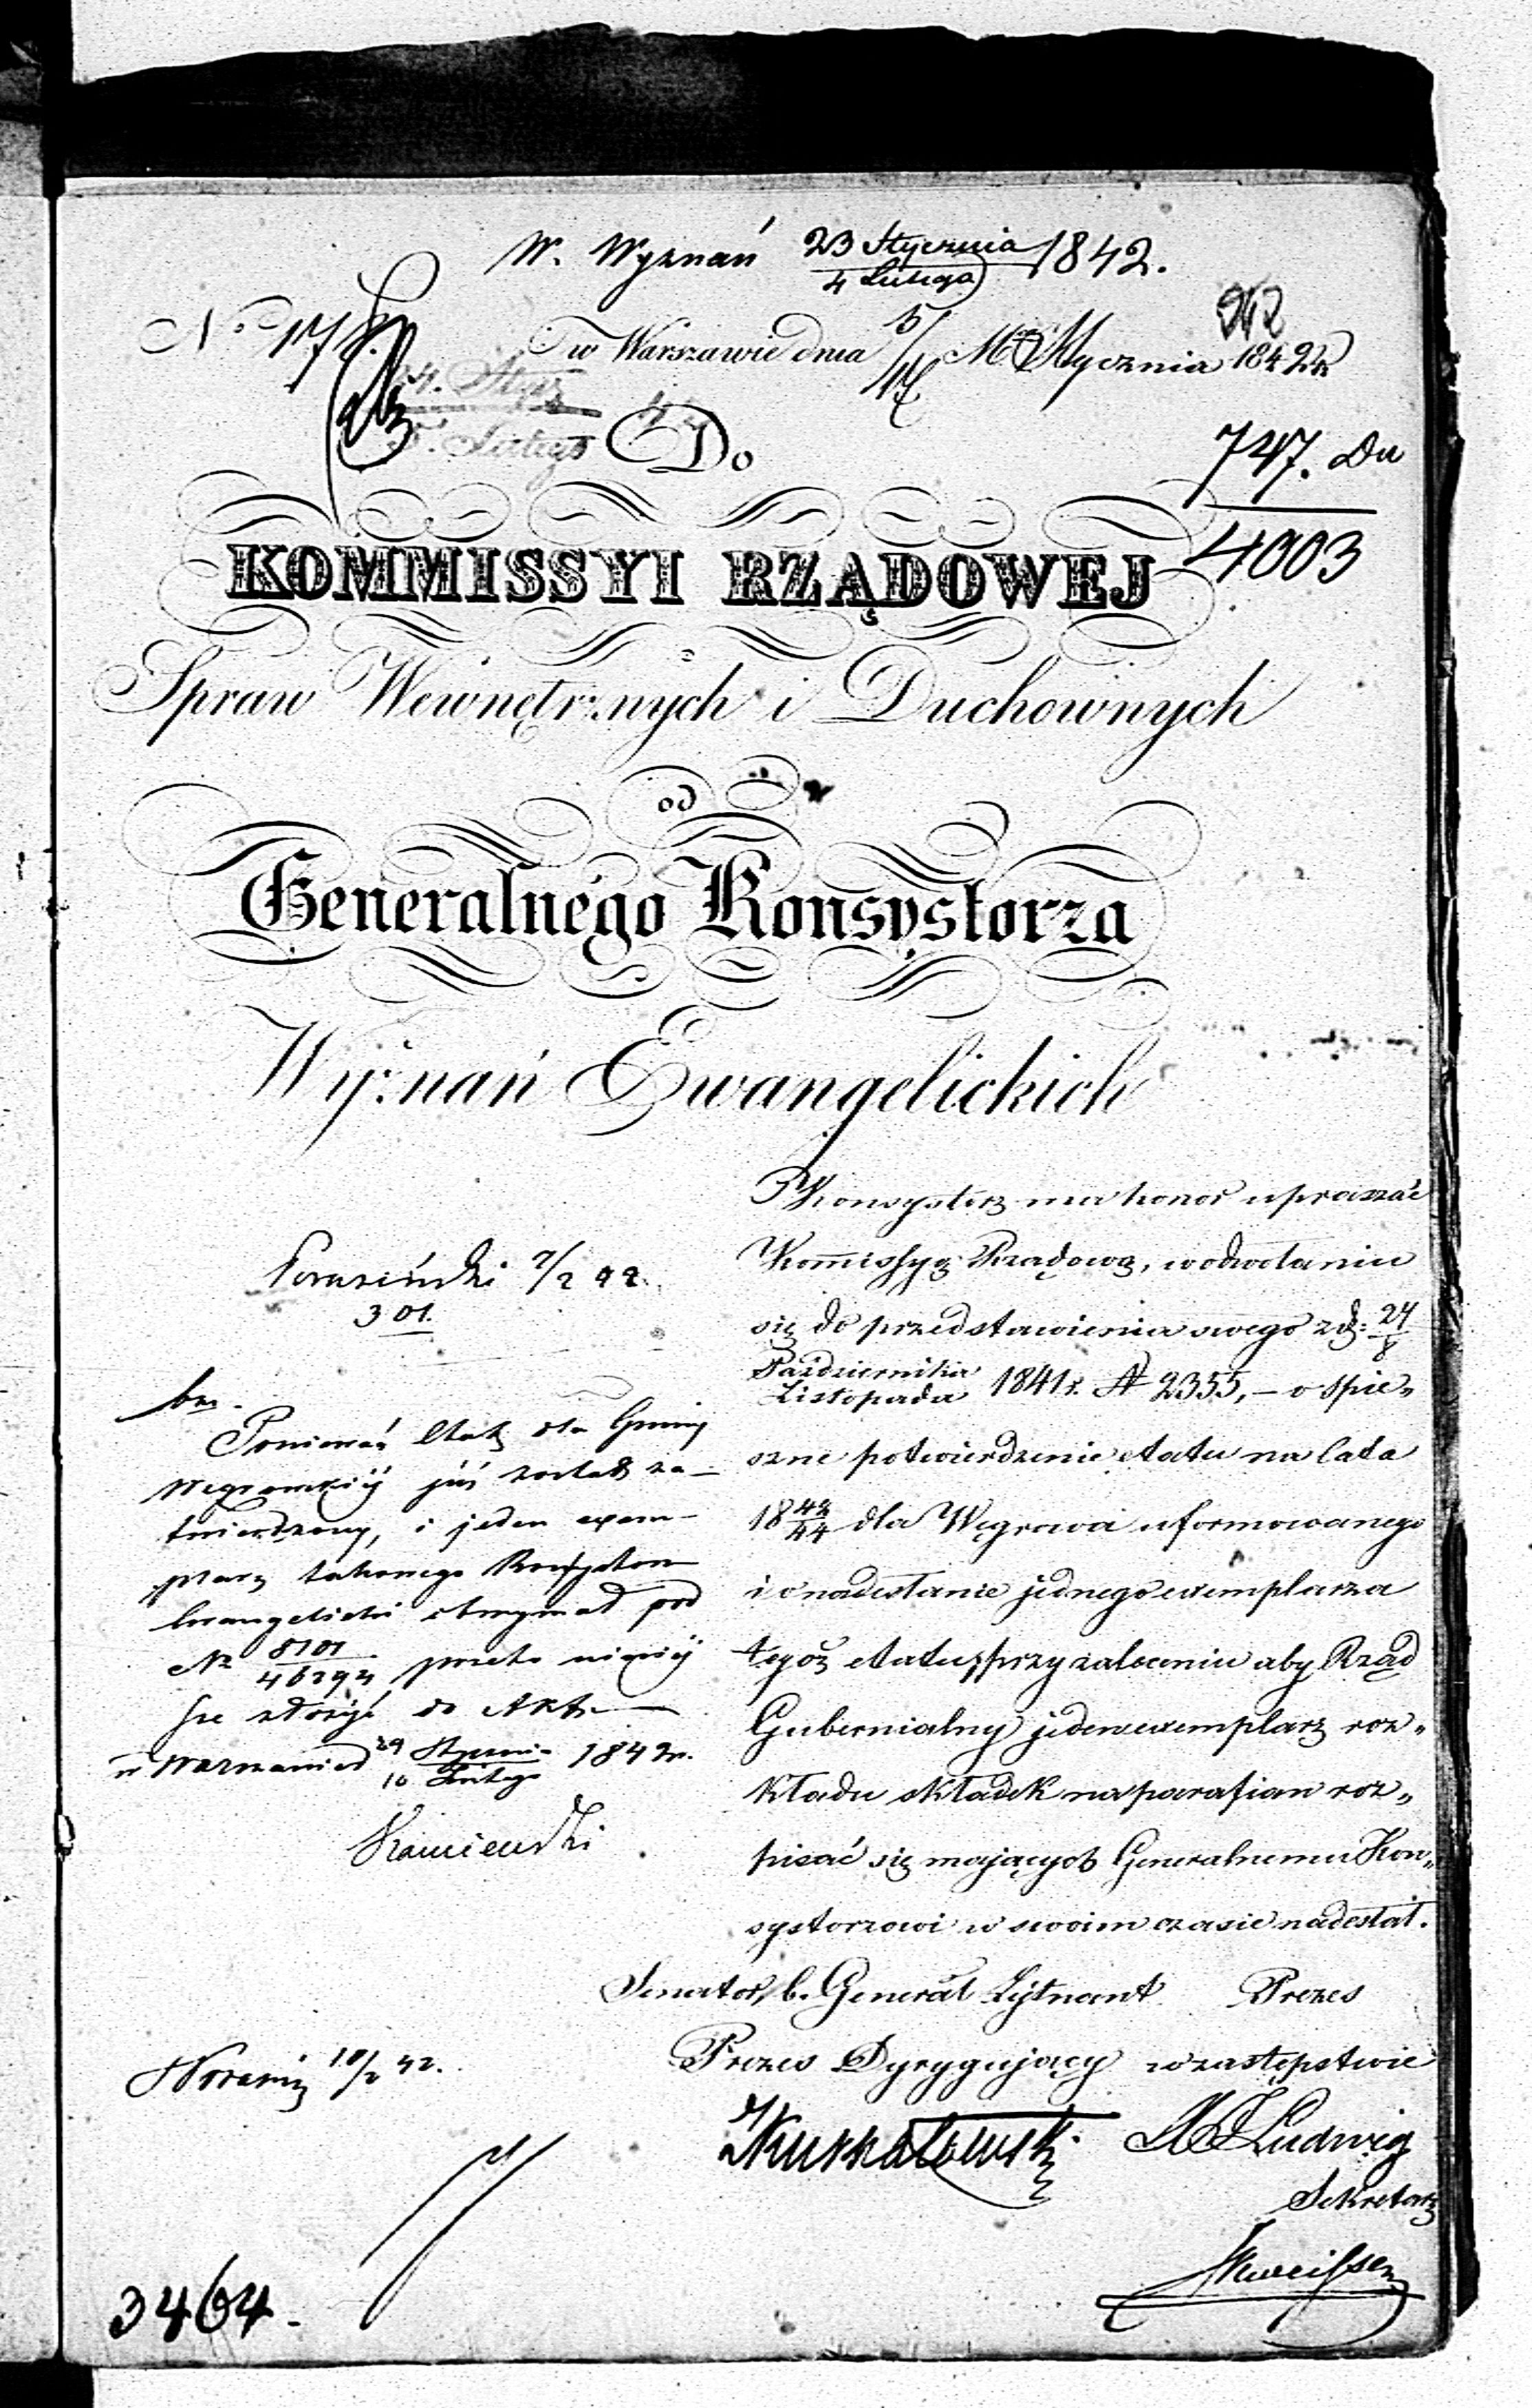 W. Wyznań 23 Stycznia / 4 Lutego 1842.
w Warszawie dnia 5/17 Mca Stycznia 1842 r
24. Stycz
5. Lutego 42
Do
747. Du
4003
KOMMISSYI RZĄDOWEJ
Spraw Wewnętrznych i Duchownych
od
Generalnégo Konsystorza
Wyznań Ewangelickich
Konsystorz ma honor upraszać
Kommissyę Rządową, w odwołaniu
się do przedstawienia swego z d: 27/8
Października / Listopada 1841 r. N 2355, – o spie„
szne potwierdzenie etatu na lata
18 42/44 dla Węgrowa uformowanego
i o nadesłanie jednego exemplarza
tegoż etatu, przy zaleceniu aby Rząd
Gubernialny jeden exemplarz roz„
kładu składek na parafian roz„
pisać się mających Generalnemu Kon„
systorzowi w swoim czasie nadesłał.
Senator, b. Generał Lejtnant Prezes
Prezes Dyrygujący w zastępstwie
Ludwig
Sekretarz
7/2 42.
301.
Ponieważ Etat dla Gminy
Węgrowskiéj już został za–
twierdzony, i jeden exem–
plarz takowego Konsystorz
Ewangelicki otrzymał pod
N 8101/46294 przeto niniéj
sze złożyć do Akt.
w Warszawie d 29 Stycznia / 10 Lutego 1842 r.
Kamieński
10/2 42.
3464.